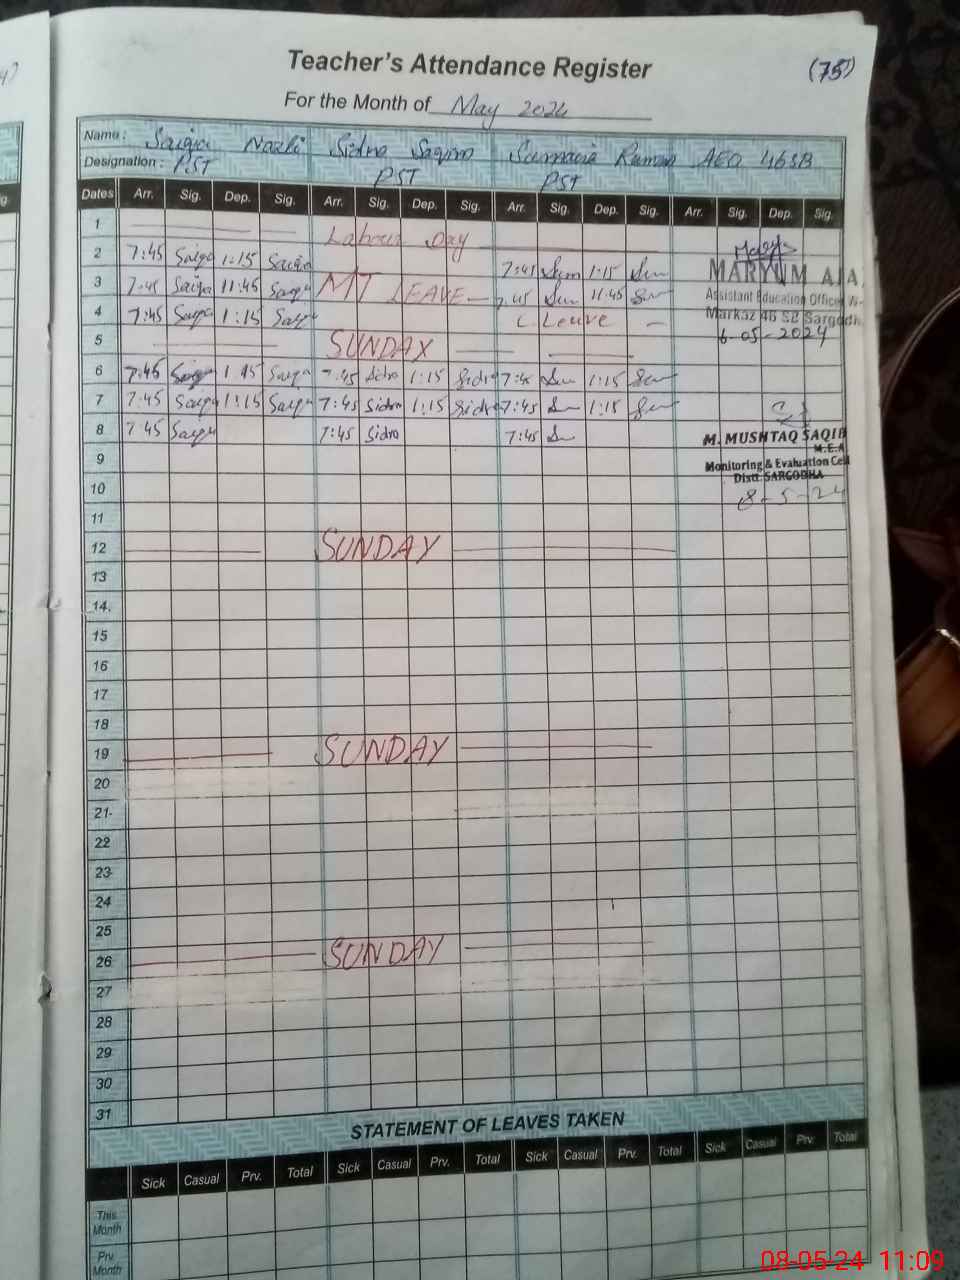 Teacher's Attendance Register
(75)
For the Month of May 2024
Name: Saiqa Nazli Sidra Saqim Sumaria Raman AEO 46SB
Designation: PST PST PST
Dates Arr. Sig. Dep. Sig. Arr. Sig. Dep. Sig. Arr. Sig. Dep. Sig. Arr. Sig. Dep. Sig.
1 Labour Day
2 7:45 Saiqa 1:15 Saiqa 7:45 Sum 1:15 Sum
MARYUM
3 7:45 Saiqa 11:45 Saiqa MT LEAVE 7:45 Sum 11:45 Sum
Assistant Education Officer
4 7:45 Saiqa 1:15 Saiqa C. Leave
Markaz 46 SB Sargodh
5 SUNDAY
6-05-2024
6 7:45 Saiqa 1:15 Saiqa 7:45 Sidra 1:15 Sidra 7:45 Sum 1:15 Sum
7 7:45 Saiqa 1:15 Saiqa 7:45 Sidra 1:15 Sidra 7:45 Sum 1:15 Sum
8 7:45 Saiqa 7:45 Sidra 7:45 Sum
M. MUSHTAQ SAQIB
M.E.A
9
Monitoring & Evaluation Cell
Distt: SARGODHA
10
8-5-24
11
12 SUNDAY
13
14.
15
16
17
18
19 SUNDAY
20
21
22
23
24
25
26 SUNDAY
27
28
29
30
31
STATEMENT OF LEAVES TAKEN
Sick Casual Prv. Total Sick Casual Prv. Total Sick Casual Prv. Total Sick Casual Prv. Total
This
Month
Prv.
Month
08-05-24 11:09